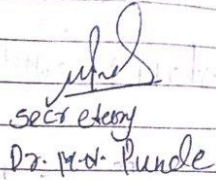 secretery
Dr. M.D. Punde